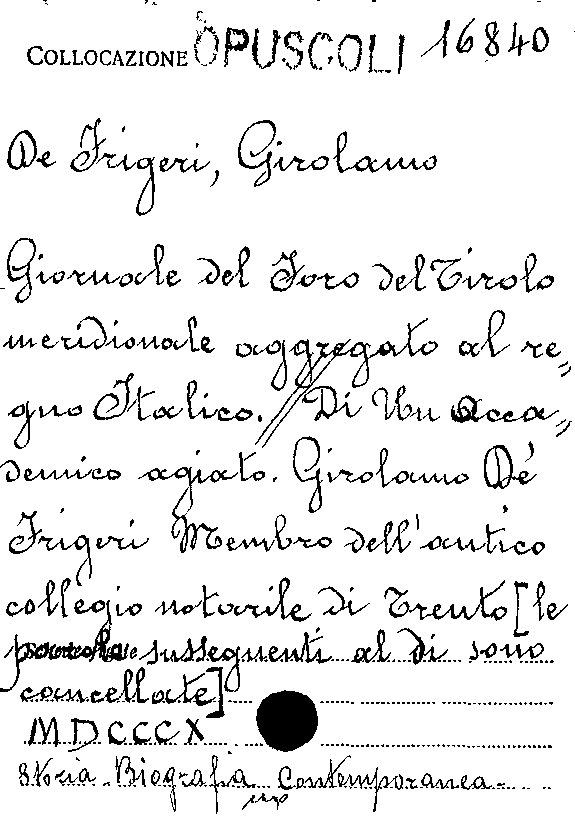 COLLOCAZIONE OPUSCOLI 16840
De Frigeri, Girolamo
Giornale del Foro del Tirolo
meridionale aggregato al re=
gno Italico. // Di Un Acca=
demico agiato. Girolamo Dé
Frigeri Membro dell'antico
collegio notarile di Trento [le
parole susseguenti al di sono
cancellate]
MDCCCX
Storia - Biografia Contemporanea -